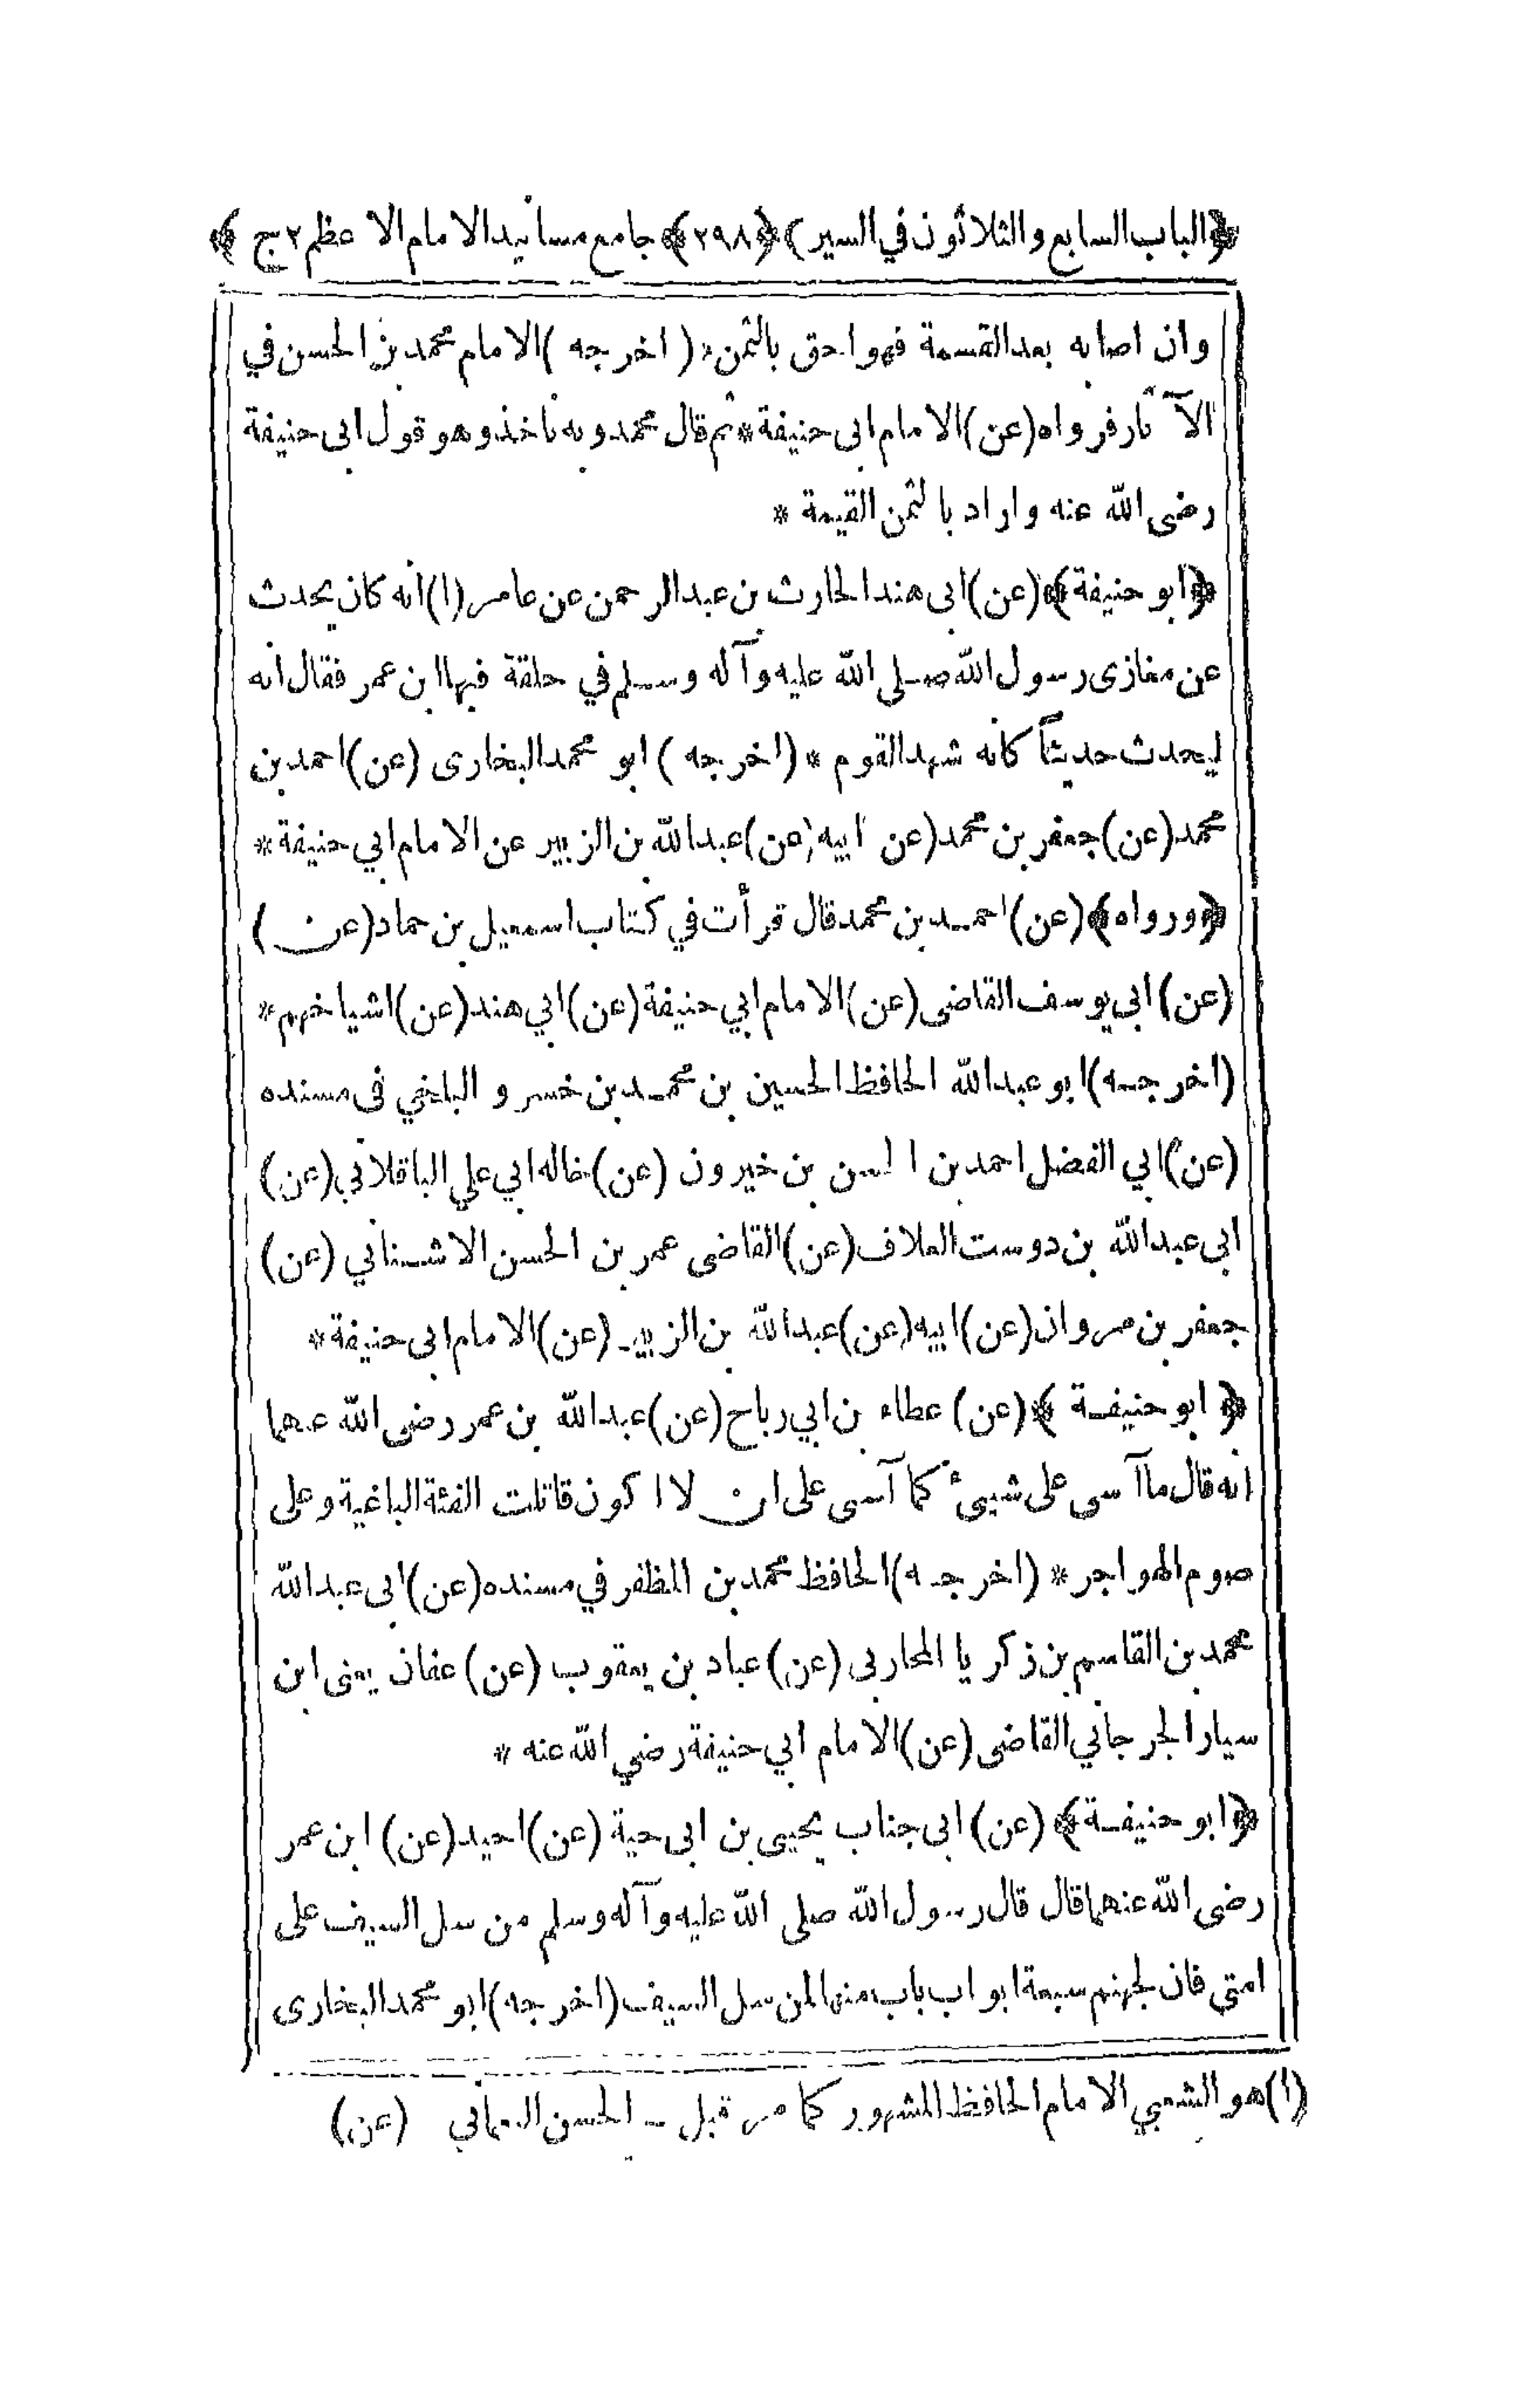 ﴿الباب السابع والثلاثون في السير﴾ ﴿٢٩٨﴾ جامع مسانيد الامام الاعظم ٢ ج ﴾
وان اصابه بعد القسمة فهو احق بالثمن * ( اخرجه ) الامام محمد بن الحسن في
الآثار فرواه (عن) الامام ابى حنيفة * ثم قال محمد وبه ناخذ وهو قول ابى حنيفة
رضى الله عنه واراد بالثمن القيمة *
﴿ابو حنيفة﴾ (عن) ابى هند الحارث بن عبد الرحمن عن عامر (١) انه كان يحدث
عن مغازى رسول الله صلى الله عليه وآله وسلم في حلقة فيها ابن عمر فقال انه
ليحدث حديثاً كانه شهد القوم * (اخرجه ) ابو محمد البخارى (عن) احمد بن
محمد (عن) جعفر بن محمد (عن ابيه (عن) عبد الله بن الزبير عن الامام ابي حنيفة *
﴿ورواه﴾ (عن) احمد بن محمد قال قرأت في كتاب اسمعيل بن حماد (عن)
(عن) ابي يوسف القاضى (عن) الامام ابي حنيفة (عن) ابي هند (عن) اشياخهم *
(اخرجه) ابو عبد الله الحافظ الحسين بن محمد بن خسرو البلخي فى مسنده
(عن) ابي الفضل احمد بن الحسن بن خيرون (عن) خاله ابي علي الباقلاني (عن)
ابى عبد الله بن دوست العلاف (عن) القاضى عمر بن الحسن الاشناني (عن)
جعفر بن مروان (عن) ابيه (عن) عبد الله بن الزبير (عن) الامام ابى حنيفة *
﴿ ابو حنيفة ﴾ (عن) عطاء بن ابي رباح (عن) عبد الله بن عمر رضى الله عنهما
انه قال ما آسى على شيئ كما آسى على ان لا اكون قاتلت الفئة الباغية وعلى
صوم الهواجر * (اخرجه) الحافظ محمد بن المظفر في مسنده (عن) ابى عبد الله
محمد بن القاسم بن زكريا المحاربى (عن) عباد بن يعقوب (عن) عفان يعنى ابن
سيار الجرجاني القاضى (عن) الامام ابي حنيفة رضي الله عنه *
﴿ابو حنيفة﴾ (عن) ابى جناب يحيى بن ابى حية (عن) احيد (عن) ابن عمر
رضى الله عنهما قال قال رسول الله صلى الله عليه وآله وسلم من سل السيف على
امتي فان لجهنم سبعة ابواب باب منها لمن سل السيف (اخرجه) ابو محمد البخارى
(١) هو الشعبي الامام الحافظ المشهور كما مر قبل ـ الحسن النعماني (عن)